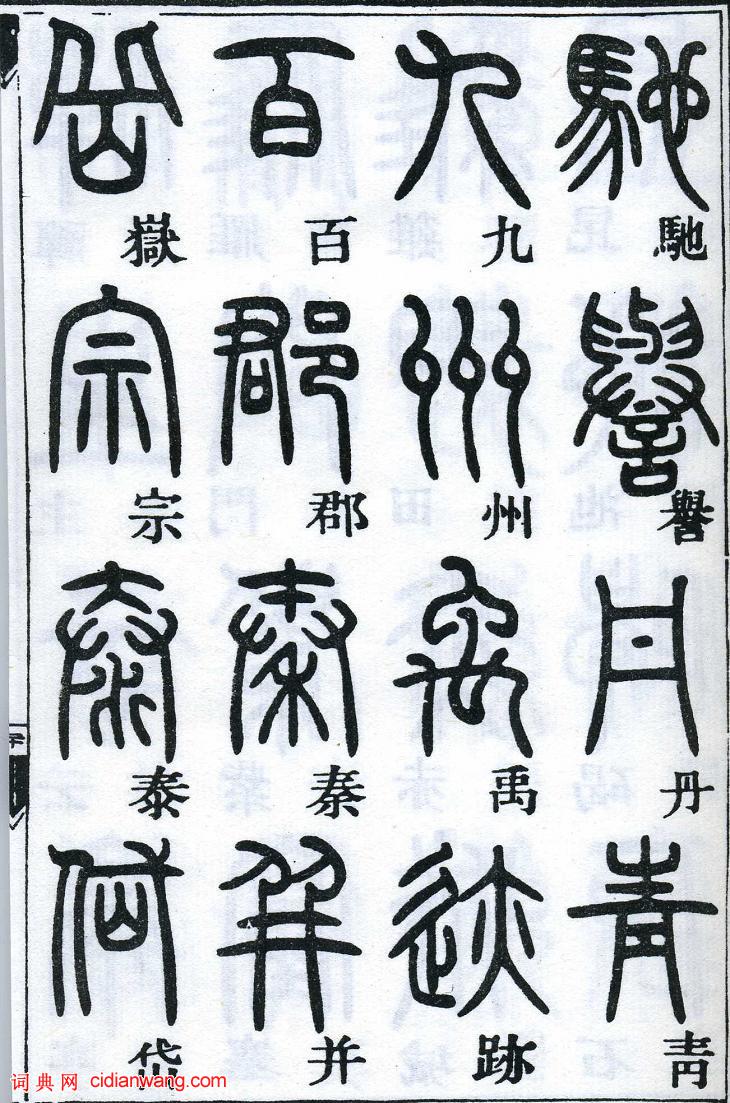 馳譽丹靑
九州禹跡
百郡秦并
嶽宗泰岱
词典网 cidianwang.com